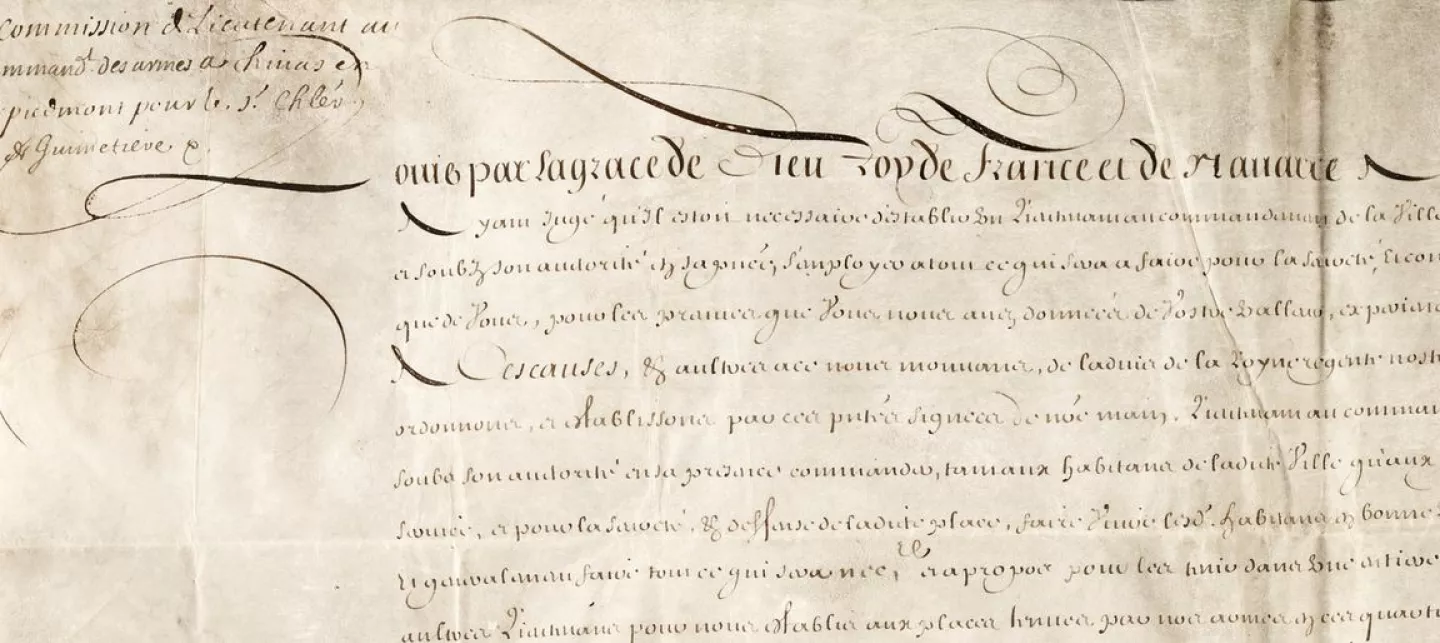 Commission de Lieutenant au
mmand.t des armes a Chivas en
piedmont pour le s.r Chler
de Guimetieve
ouis par la grace de Dieu Roy de France et de Navarre A
yant Jugé qu'Il estoit necessaire d'establir Un Lieutenant au commandement de la Ville
et soubz son autorité en sa pnce, s'employer a tout ce qui sera a faire pour la seureté, Et con
que de Vous, pour les preuves que Vous nous avez données de Vostre Valleur, experien
A Ces causes, & aultres a ce nous mouvans, de l'advis de la Royne regente nost
ordonnons, et establissons par ces pntes signées de nre main, Lieutenant au comman
soubs son autorité en sa presence commander, tant aux habitans de ladicte Ville qu'aux
pour la seureté, & deffense de ladicte place, faire Vivre lesd. habitans en bonne
Et generalement faire tout ce qui sera nec.re et a propos pour les
aultres Lieutenans pour nous establis aux places tenues par nos armes en ces quart